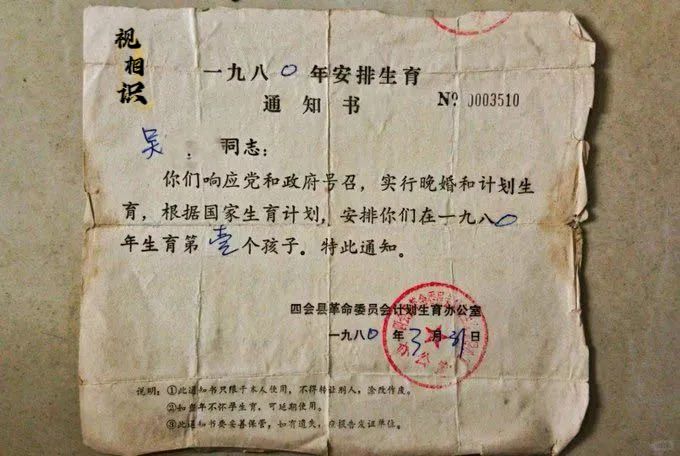 视相识
一九八0年安排生育
通知书
Nº 0003510
吴 同志：
你们响应党和政府号召，实行晚婚和计划生
育，根据国家生育计划，安排你们在一九八0
年生育第壹个孩子。特此通知。
四会县革命委员会计划生育办公室
一九八0年3月31日
说明：①此通知书只限于本人使用，不得转让别人，涂改作废。
②如当年不怀孕生育，可延期使用。
③此通知书要妥善保管，如有遗失，应报告发证单位。